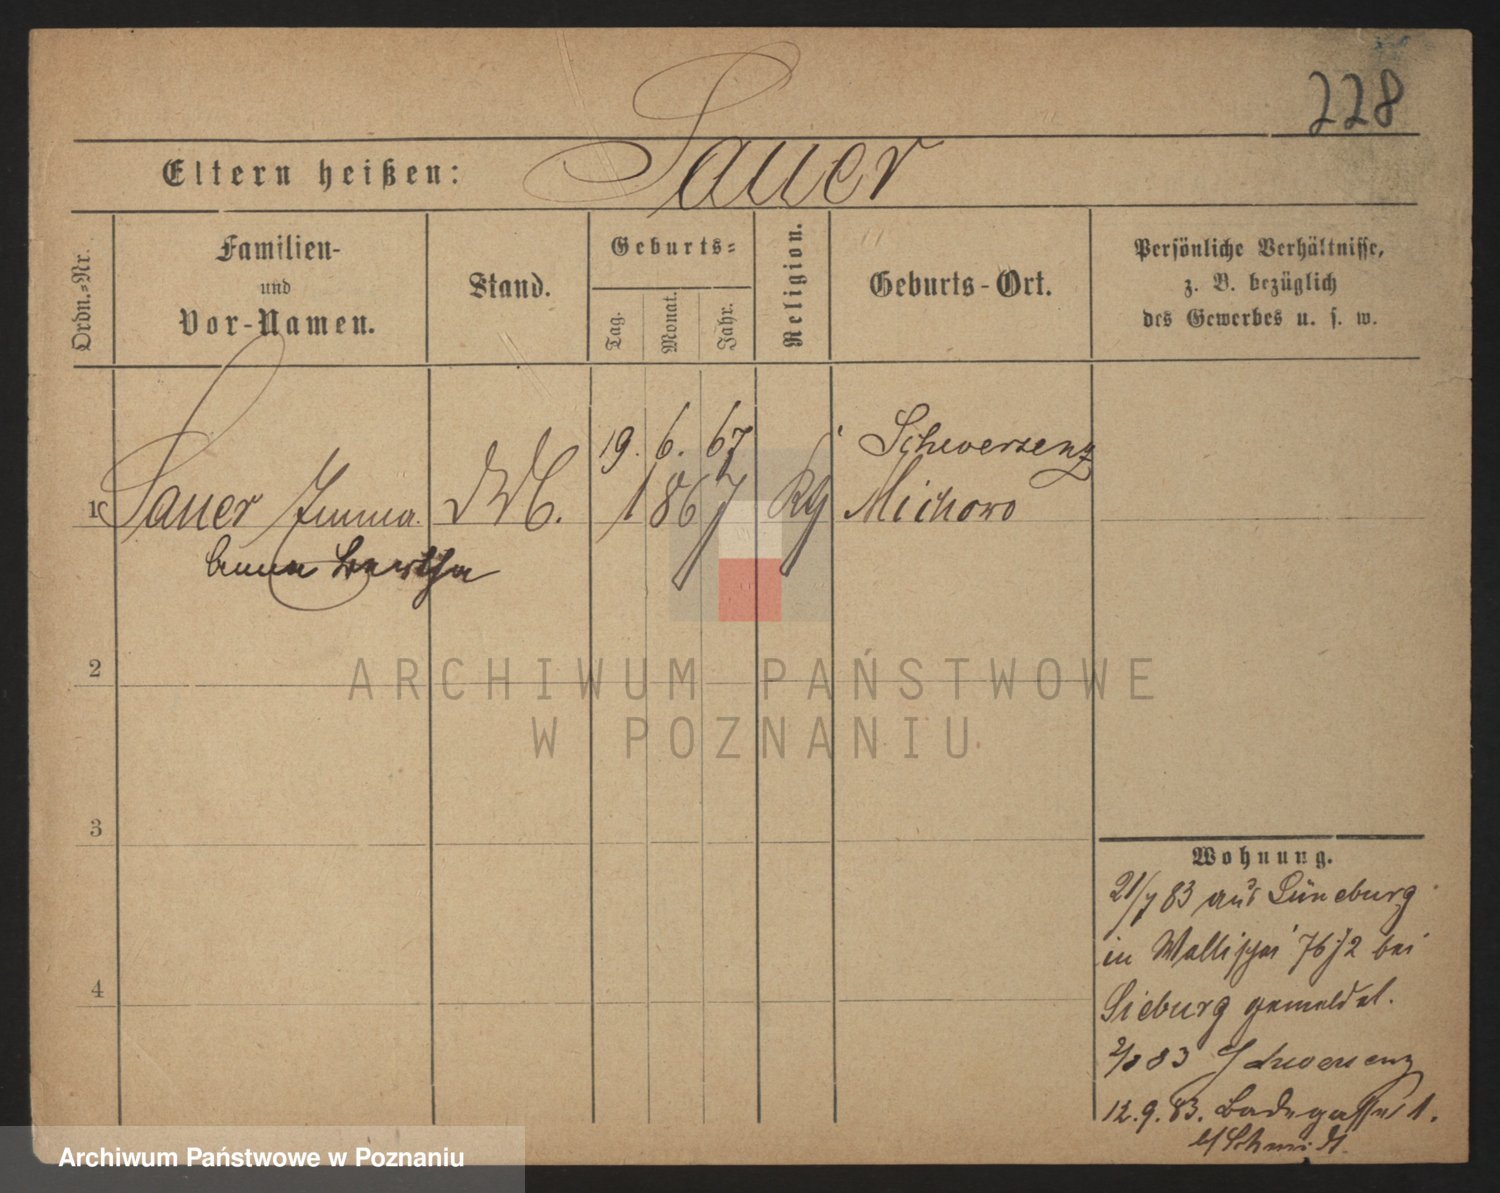 228
Eltern heißen: Sauer
Ordn.-Nr.
Familien-
und
Vor-Namen.
Stand.
Geburts-
Tag.
Monat.
Jahr.
Religion.
Geburts-Ort.
Persönliche Verhältnisse,
z. B. bezüglich
des Gewerbes u. s. w.
19. 6. 67 Schwersenz
1 Sauer Emma 1867 Michowo
Anna Bertha
2
ARCHIWUM PAŃSTWOWE
W POZNANIU
3
Wohnung.
21/7 83 aus Lüneburg
in Wallischei 76/72 bei
Sieburg gemeldet.
83 Schwersenz
12.9.83. Badegasse 1.
b/Schmidt.
4
Archiwum Państwowe w Poznaniu